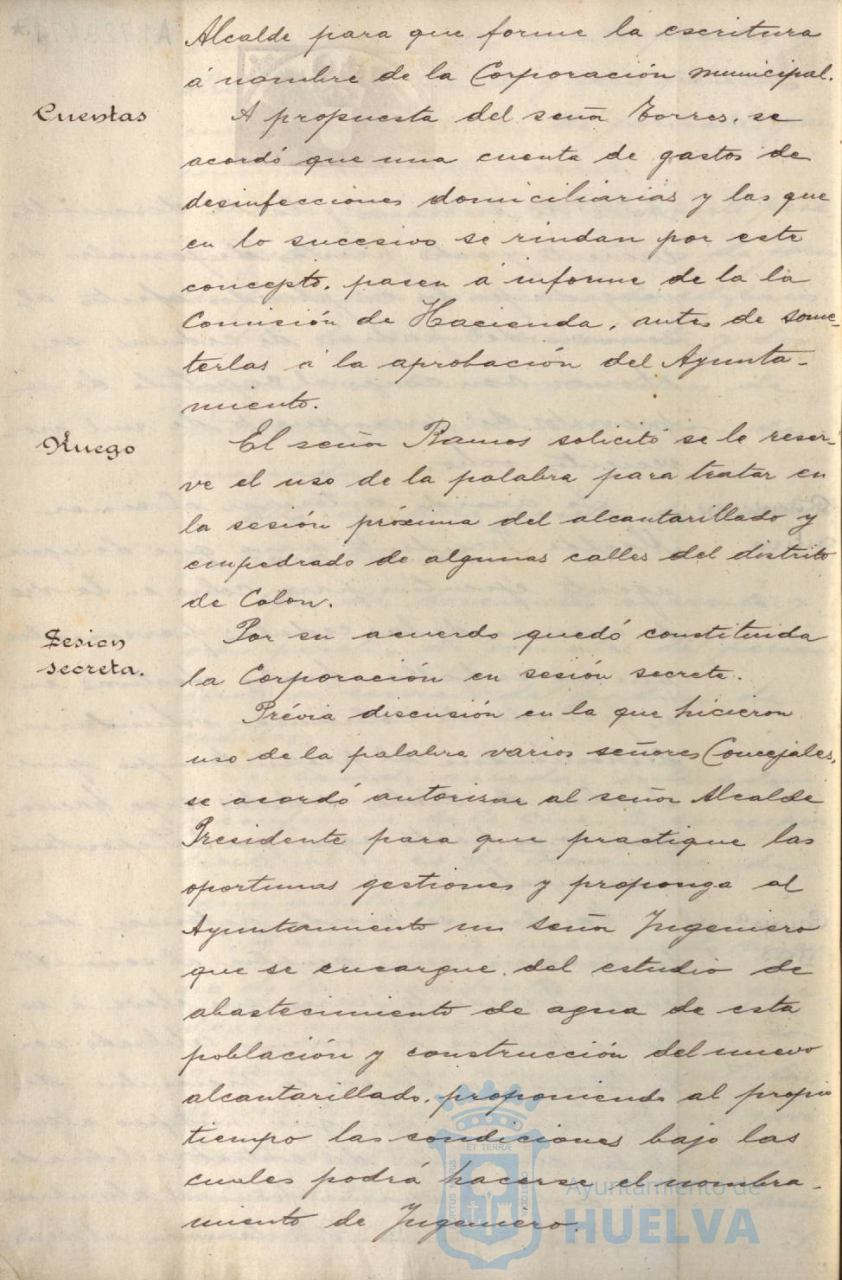 Alcalde para que forme la escritura
á nombre de la Corporación municipal.
Cuentas
A propuesta del señor Torres, se
acordó que una cuenta de gastos de
desinfecciones domiciliarias y las que
en lo sucesivo se rindan por este
concepto, pasen á informe de la la
Comisión de Hacienda, antes de some-
terlas á la aprobación del Ayunta-
miento.
Ruego
El señor Ramos solicitó se le reser-
ve el uso de la palabra para tratar en
la sesión próxima del alcantarillado y
empedrado de algunas calles del distrito
de Colon.
Sesion
secreta.
Por su acuerdo quedó constituida
la Corporación en sesión secreta.
Prévia discusión en la que hicieron
uso de la palabra varios señores Concejales,
se acordó autorizar al señor Alcalde
Presidente para que practique las
oportunas gestiones y proponga al
Ayuntamiento un señor Ingeniero
que se encargue del estudio de
abastecimiento de agua de esta
población y construcción del nuevo
alcantarillado, proponiendo al propio
tiempo las condiciones bajo las
cuales podrá hacerse el nombra-
miento de Ingeniero.
Ayuntamiento de
HUELVA